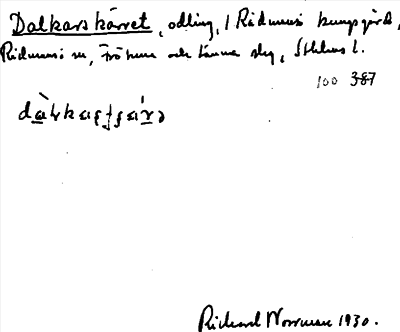 Dalkarskärret, odling, / Rådmansö kungsgård,
Rådmansö sn, Frötuna och Länna slg, Sthlms l.
100 387
Richard Norrman 1930.